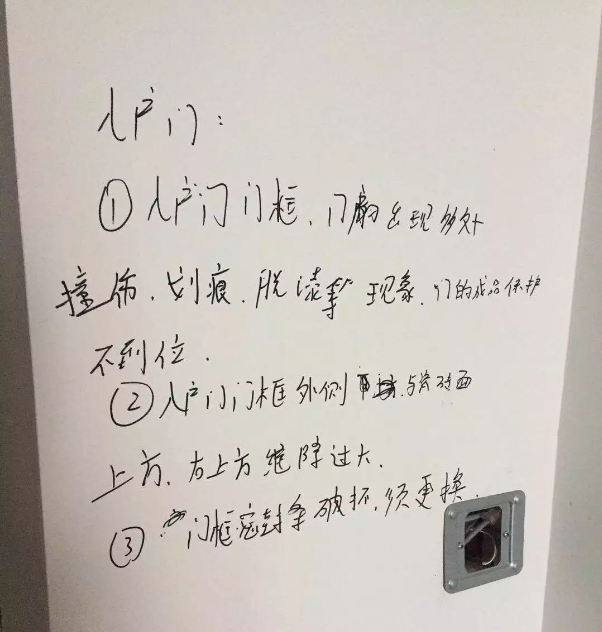 入户门：
① 入户门门框、门扇出现多处
撞伤、划痕、脱漆等现象，门的成品保护
不到位．
② 入户门门框外侧 与 对面
上方、右上方缝隙过大．
③ 门框密封条破坏，须更换．